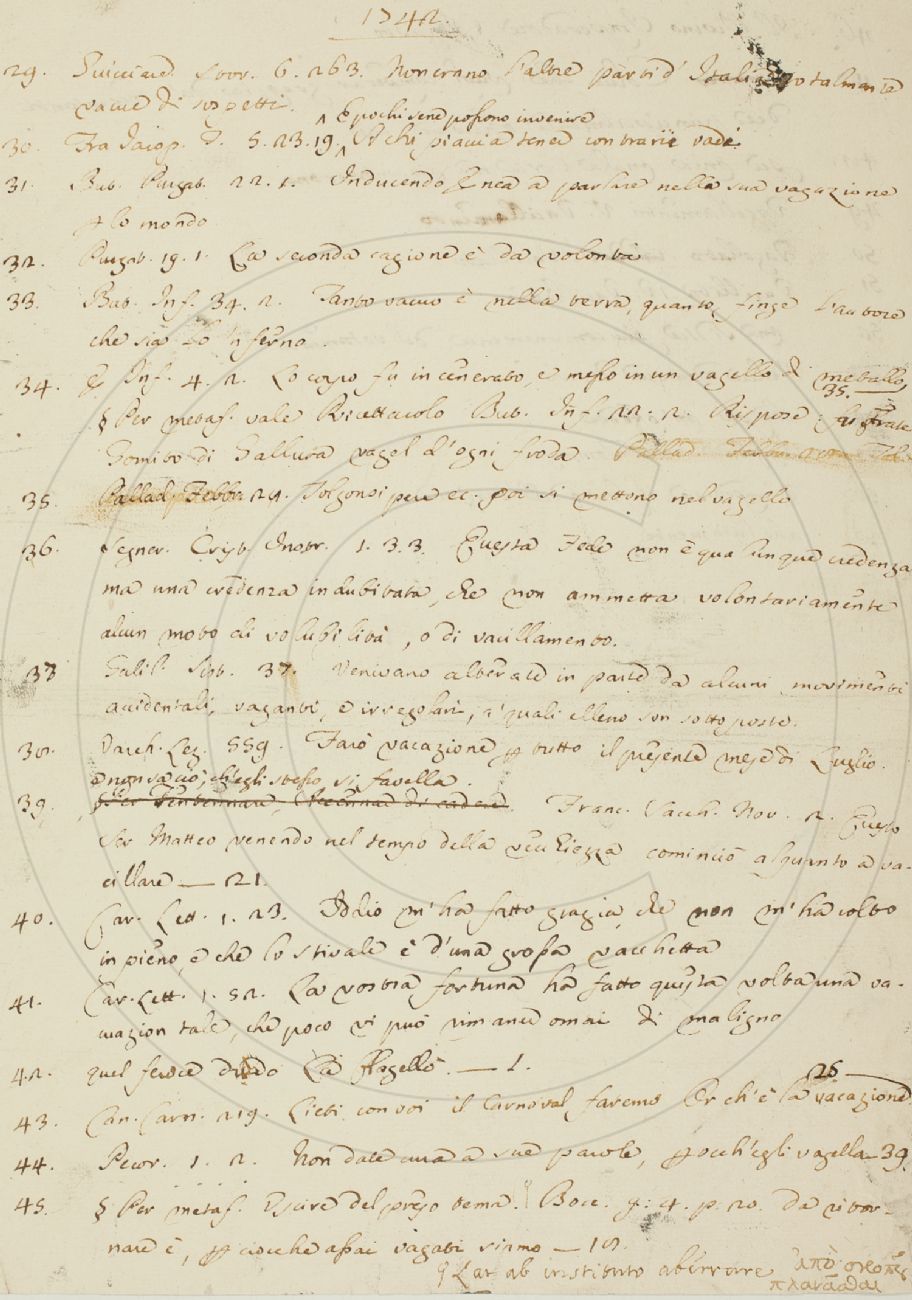 1742.
29. Guicciard. Stor. 6. 263. Non erano l'altre parti d'Italia totalmente
vacue di sospetti.
^ Epochi sene possono invenire
30. Fra Iacop. T. 5. 23. 19. ^ A chi piaccia tener contrarie vade.
31. But. Purgat. 22. 1. Inducendo Enea a parlare nella sua vagazione
p lo mondo
32. Purgat. 19. 1. La seconda cagione è da volontà
33. But. Inf. 34. 2. Tanto vacuo è nella terra, quanto finge l'autore
che sia lo 'nferno.
34. E Inf. 4. 2. Lo corpo fu incenerato, e messo in un vagello di metallo,
35.
§ Per metaf. vale Ricettacolo But. Inf. 22. 2. Rispose: Frate
Gomito di Gallura vagel d'ogni froda. Pallad. Febbr.
35. Pallad. Febbr. 29. Tolgonsi pere ec. poi si mettono nel vagello
36. Segner. Crist. Instr. 1. 3. 3. Questa Fede non è qualunque credenza
ma una credenza indubitata, che non ammetta volontariamente
alcun moto di volubilità, o di vacillamento.
37 Galil. Sist. 37. Venivano alterate in parte da alcuni movimenti
accidentali, vaganti, e irregolari, a' quali elleno son sottoposte.
38. Varch. Lez. 559. Farò vacazione p tutto il presente mese di Luglio.
e non sa ciò, ch'egli stesso si favella.
39. Franc. Sacch. Nov. 2. Questo
Ser Matteo venendo nel tempo della vecchiezza cominciò alquanto a va-
cillare — 21.
40. Car. Lett. 1. 23. Iddio m'ha fatto grazia, che non m'ha colto
in pieno, e che lo stivale è d'una grossa vacchetta
41. Car. Lett. 1. 52. La vostra fortuna ha fatto questa volta una va-
cuazion tale, che poco vi può rimaner omai di maligno
42. quel feroce drudo La flagellò. — 1.
26
43. Can. Carn. 219. Lieti con voi il Carnoval faremo Perch'è la vacazione
44. Pecor. 1. 2. Non date cura a sue parole, p occh'egli vagella — 39
45. § Per metaf. Uscire del preso tema. Bocc. g. 4. p. 20. Da ritor-
nare è, p ciocche assai vagati siamo — 18.
§ Lat. ab instituto aberrare ἀπὸ σκοπῆς
πλανᾶσθαι